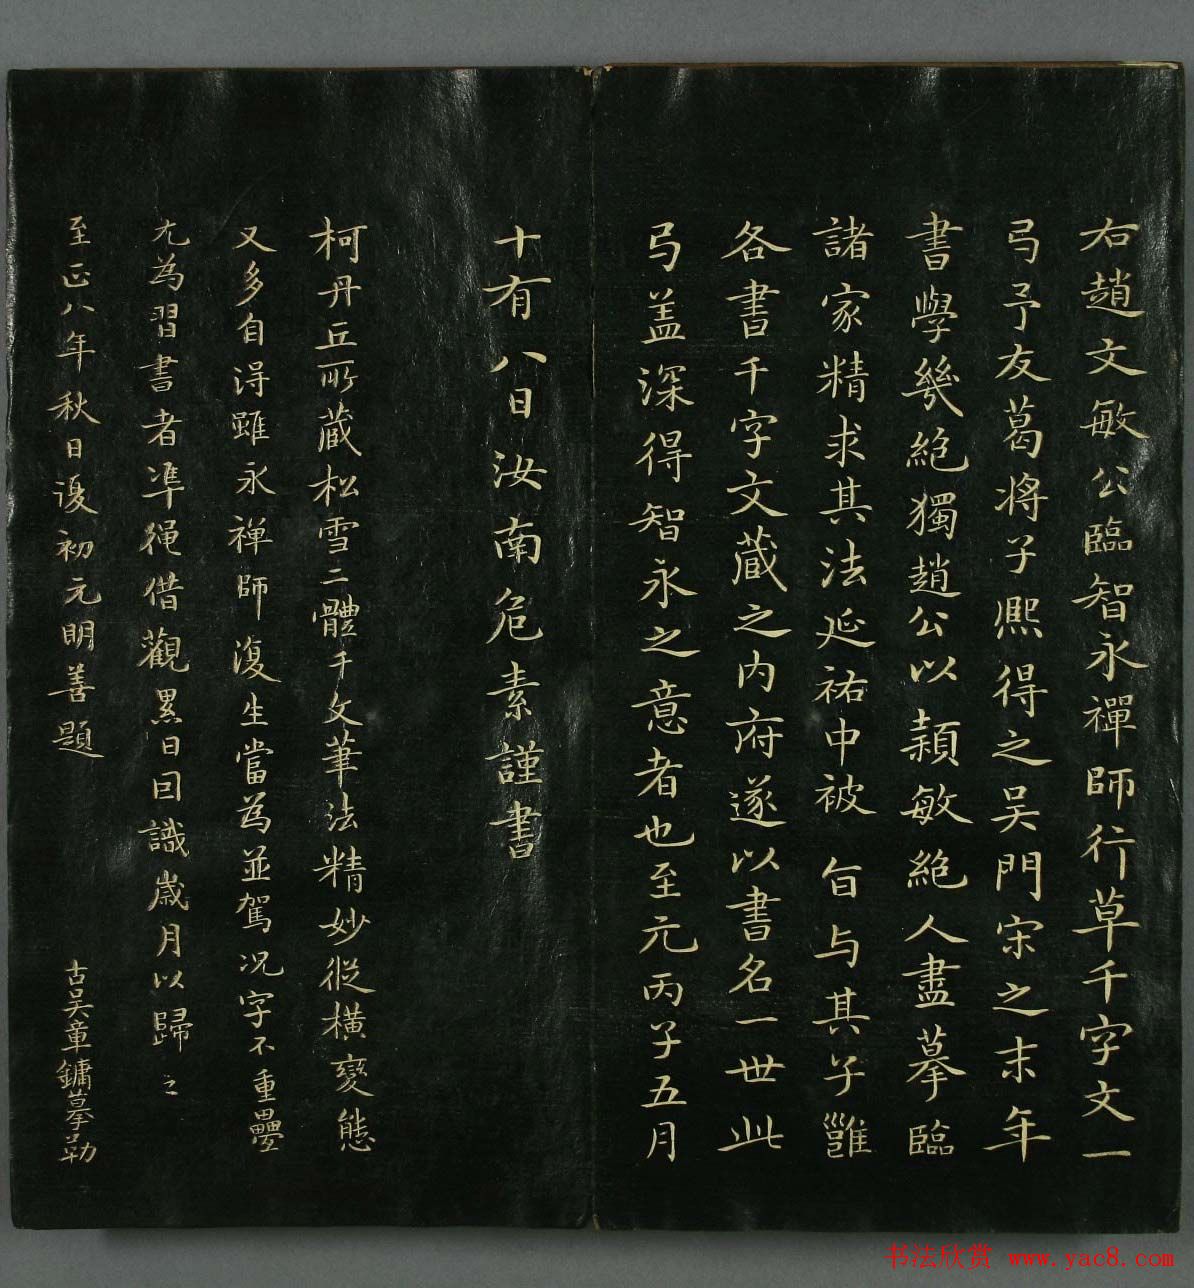 右趙文敏公臨智永禪師行草千字文一
弓予友葛将子熈得之吴門宋之末年
書學㡬絶獨趙公以穎敏絶人盡摹臨
諸家精求其法延祐中被旨与其子雝
各書千字文藏之内府遂以書名一世此
弓盖深得智永之意者也至元丙子五月
十有八日汝南危素謹書
柯丹丘所蔵松雪二體千文筆法精妙縱橫變態
又多自淂雖永禅師復生當為並駕况字不重疊
尤為習書者準繩借觀累日因識歲月以歸之
至正八年秋日後初元明善題
古吴章鏞摹勒
书法欣赏 www.yac8.com